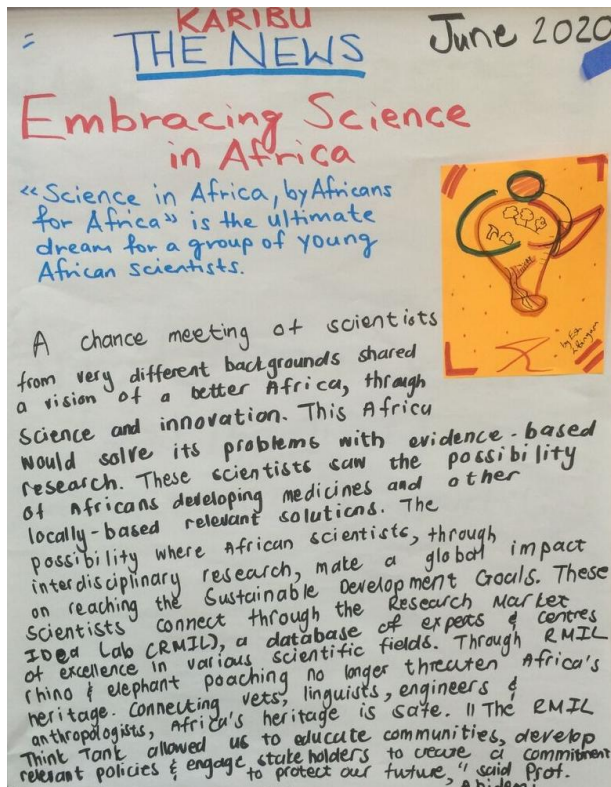 KARIBU
THE NEWS
June 2020
Embracing Science
in Africa
"Science in Africa, by Africans
for Africa" is the ultimate
dream for a group of young
African scientists.
by
A chance meeting of scientists
from very different backgrounds shared
a vision of a better Africa, through
Science and innovation. This Africa
would solve its problems with evidence-based
research. These scientists saw the possibility
of Africans developing medicines and other
locally-based relevant solutions. The
possibility where African scientists, through
interdisciplinary research, make a global impact
on reaching the Sustainable Development Goals. These
Scientists connect through the Research Market
IDea Lab (RMIL), a database of experts & centres
of excellence in various scientific fields. Through RMIL
rhino & elephant poaching no longer threaten Africa's
heritage. Connecting vets, linguists, engineers &
anthropologists, Africa's heritage is safe. "The RMIL
Think Tank allowed us to educate communities, develop
relevant policies & engage stakeholders to create a commitment
to protect our future," said Prof.